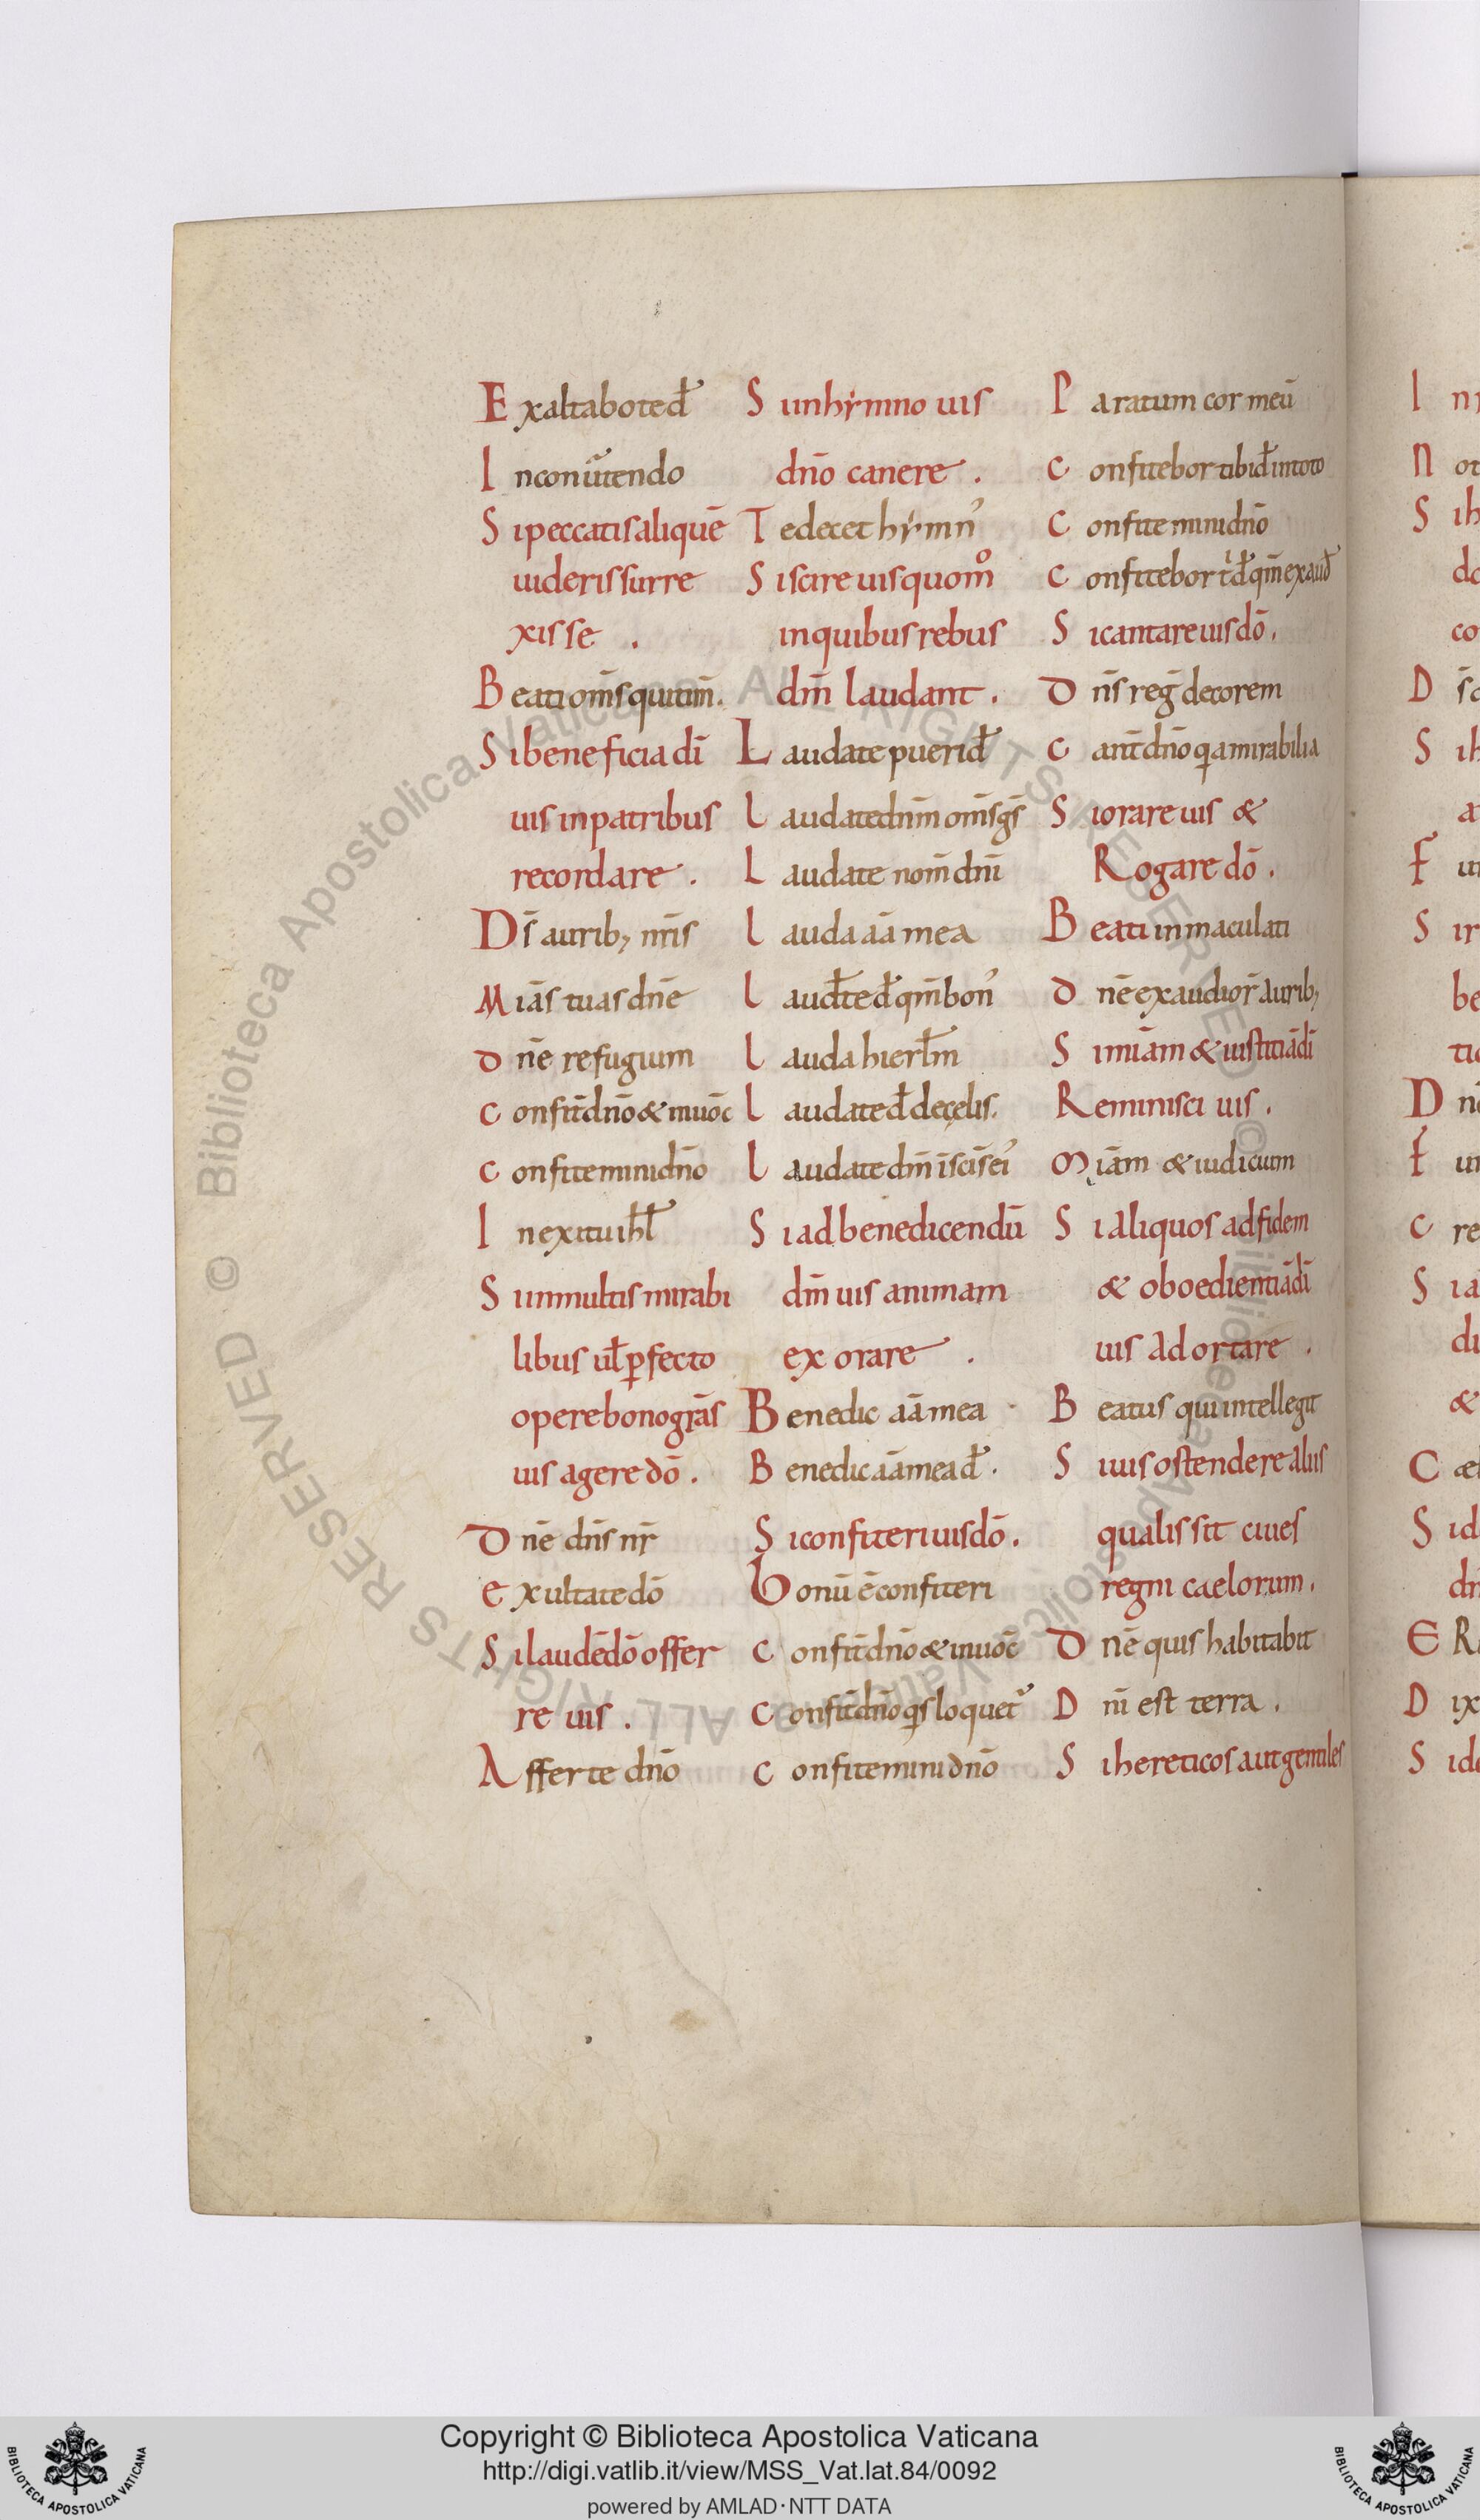 Exaltabo te d̄
In conūtendo
Si peccatis aliquē
uideris surre
xisse .
Beati om̄s quitim̄.
Si beneficia dī
uis in patribus
recordare .
Ds̄ aurib; nr̄is
Miās tuas dn̄e
Dn̄e refugium
Confit̄ dn̄o & inuoc̄
Confitemini dn̄o
In exitu isr̄l
Si in multis mirabi
libus ul̄ perfecto
opere bono gr̄as
uis agere dō .
Dn̄e dn̄s nr̄
Exultate dō
Si laudē dō offer
re uis .
Afferte dn̄o
Si in hymno uis
dn̄o canere .
Te decet hymn᾽
Si scire uis quom̊
in quibus rebus
dm̄ laudant .
Laudate pueri d̄
Laudate dn̄m om̄s gs̄
Laudate nom̄ dn̄i
Lauda aā mea
Laud̄te d̄ qm̄ bon᾽
Lauda hierl̄m
Laudate d̄ de cęlis.
Laudate dm̄ ī sc̄is ei᾽
Si ad benedicendū
dm̄ uis animam
exorare .
Benedic aā mea
Benedic aā mea d̄ .
Si confiteri uis dō .
Bonū ē confiteri
Confit̄ dn̄o & inuoc̄
Confit̄ dn̄o q̄s loquet᾽
Confitemini dn̄o
Paratum cor meū
Confitebor tibi d̄ in toto
Confitemini dn̄o
Confitebor t̄ d̄ qm̄ exaud̄
Si cantare uis dō .
Dn̄s reḡ decorem
Cant̄ dn̄o qa mirabilia
Si orare uis &
Rogare dō .
Beati inmaculati
Dn̄e exaudi or̄ aurib;
Si miām & iustitiā dī
Reminisci uis .
Miām & iudicium
Si aliquos ad fidem
& oboedientiā dī
uis adortare .
Beatus qui intellegit
Si uis ostendere aliis
qualis sit ciues
regni caelorum .
Dn̄e quis habitabit
Dn̄i est terra .
Si hereticos aut gentiles
Copyright © Biblioteca Apostolica Vaticana
http://digi.vatlib.it/view/MSS_Vat.lat.84/0092
powered by AMLAD·NTT DATA